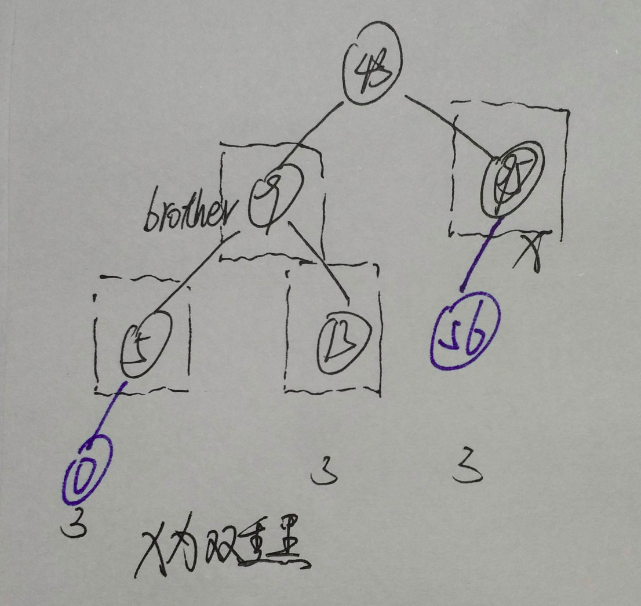 48
brother 9
X
5
13
56
0
3 3
3
X为双重黑